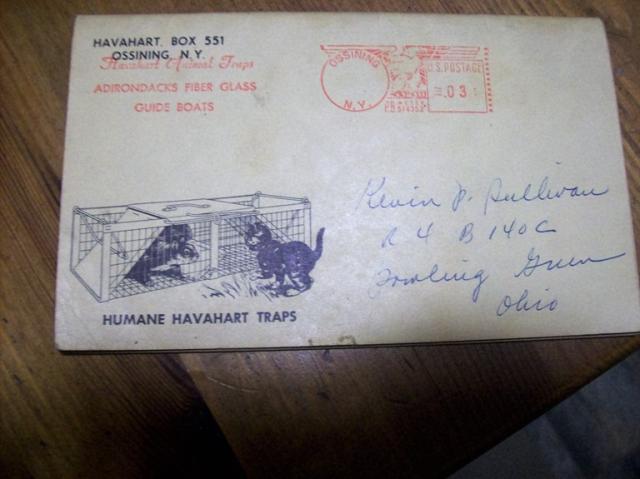 HAVAHART, BOX 551
OSSINING, N.Y.
Havahart Animal Traps
ADIRONDACKS FIBER GLASS
GUIDE BOATS
OSSINING
N.Y.
U.S. POSTAGE
.03
HUMANE HAVAHART TRAPS
Kevin P. Sullivan
R 4 B 140 C
Bowling Green
Ohio